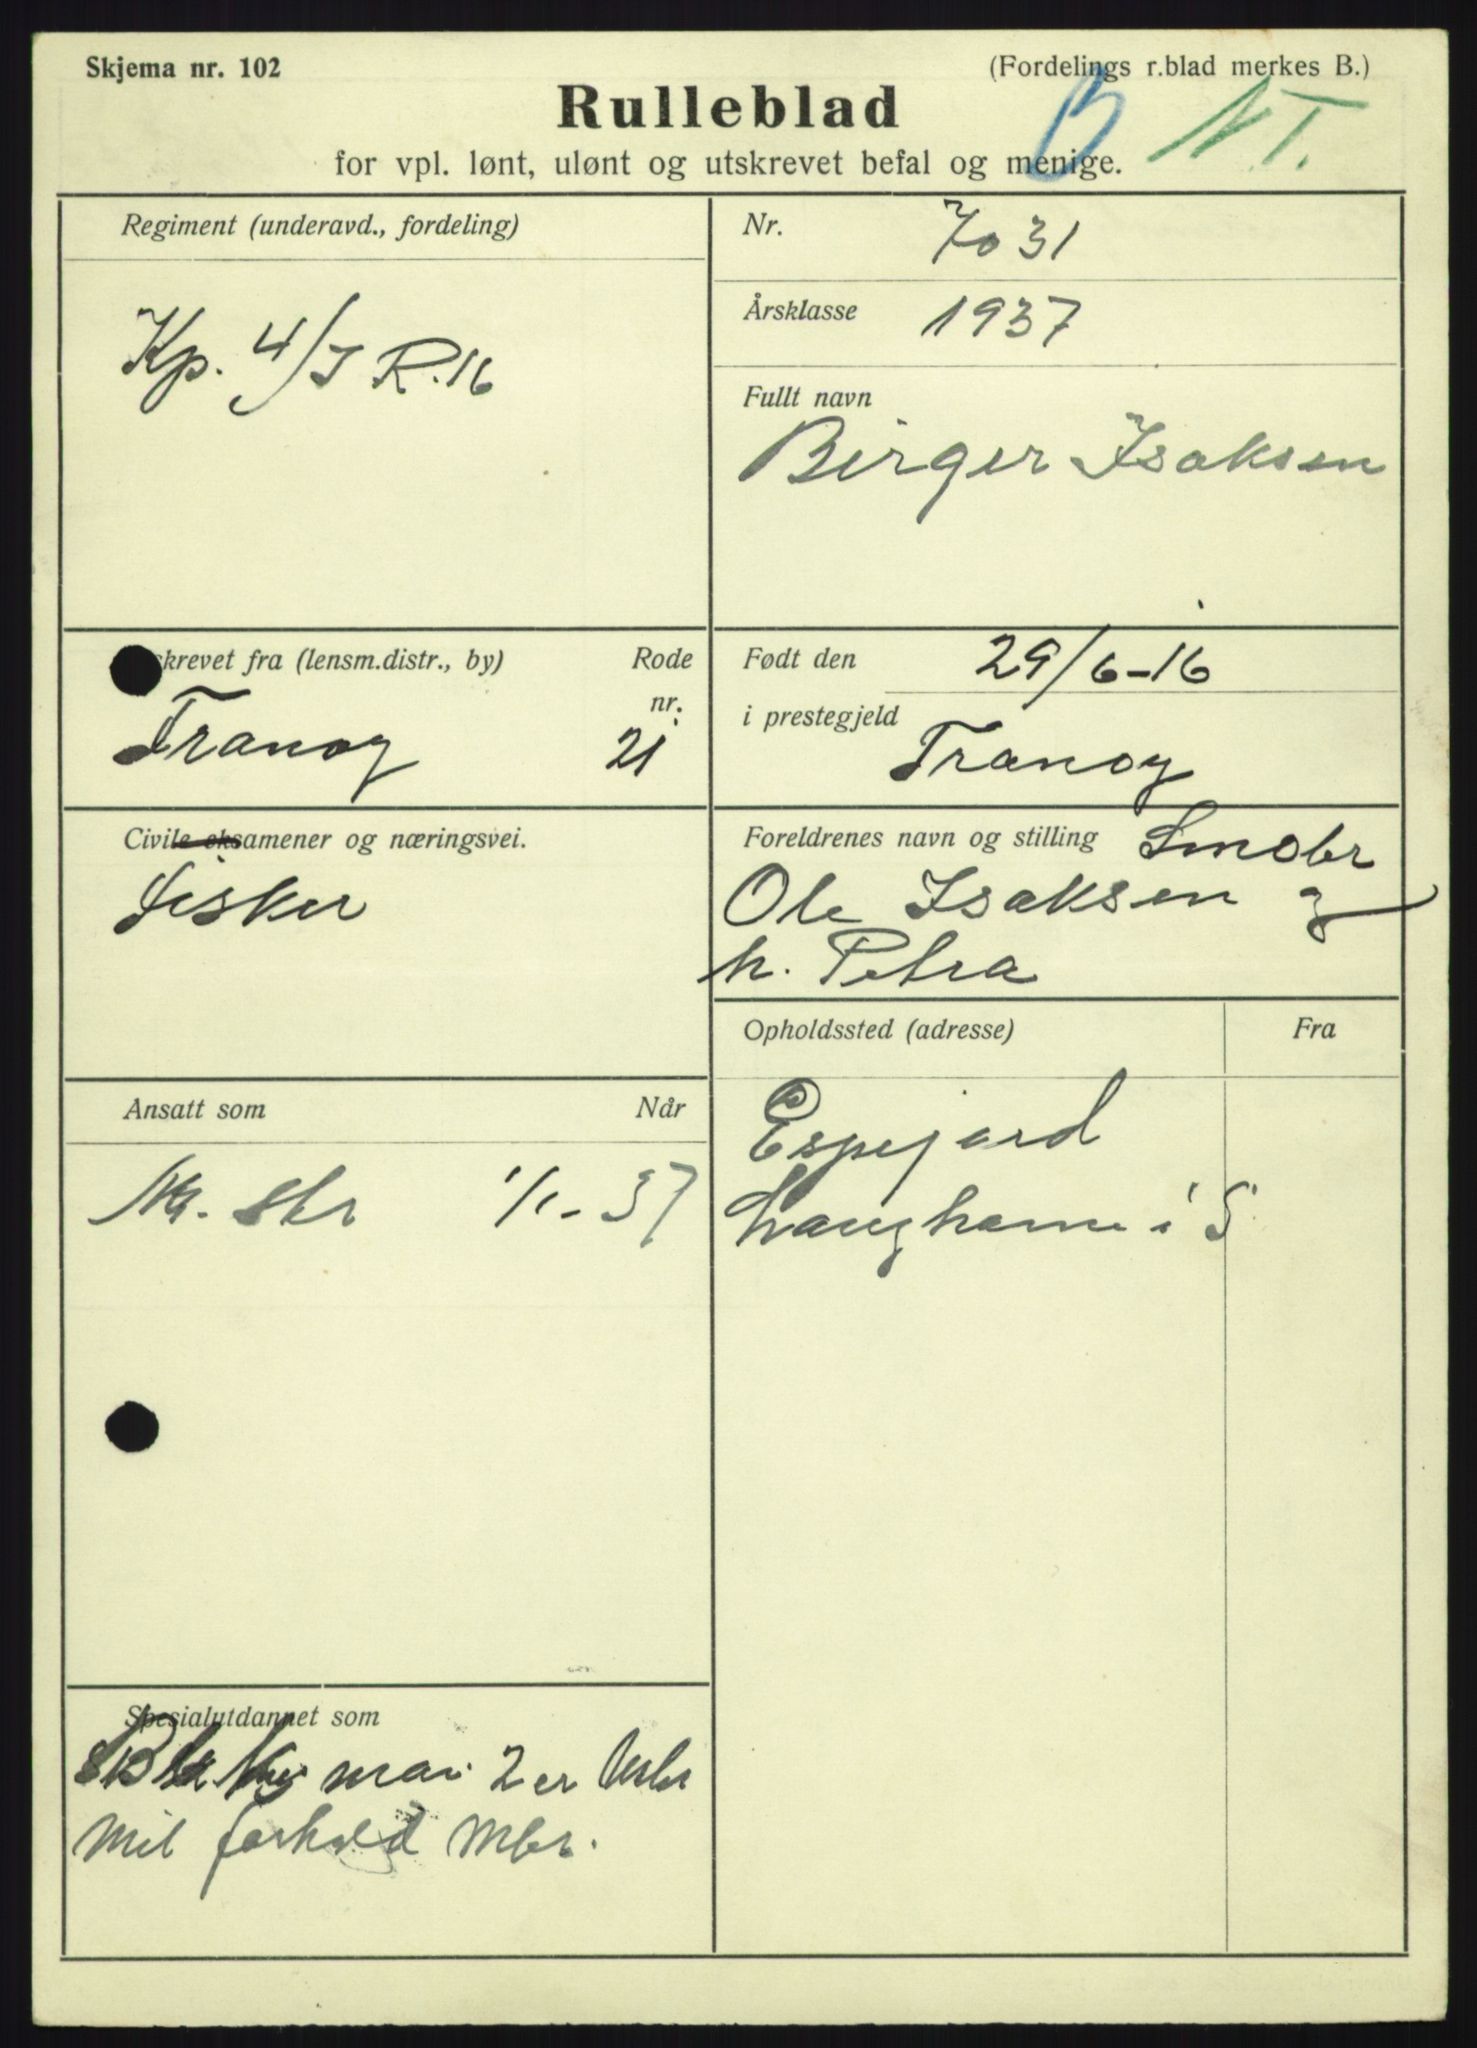 Skjema nr. 102
(Fordelings r.blad merkes B.)
Rulleblad
B NT.
for vpl. lønt, ulønt og utskrevet befal og menige.
Regiment (underavd., fordeling)
Kp. 4/J R.16
Nr. 7031
Årsklasse 1937
Fullt navn
Birger Isaksen
skrevet fra (lensm.distr., by) Rode nr.
Tranøy 21
Født den 29/6-16
i prestegjeld
Tranøy
Civile eksamener og næringsvei.
Fisker
Foreldrenes navn og stilling Smabr
Ole Isaksen og
h. Petra
Ansatt som Når
str 1/1-37
Opholdssted (adresse) Fra
Espejord
Langhamn i S
Spesialutdannet som
2 er
Mil forhold Mbr.